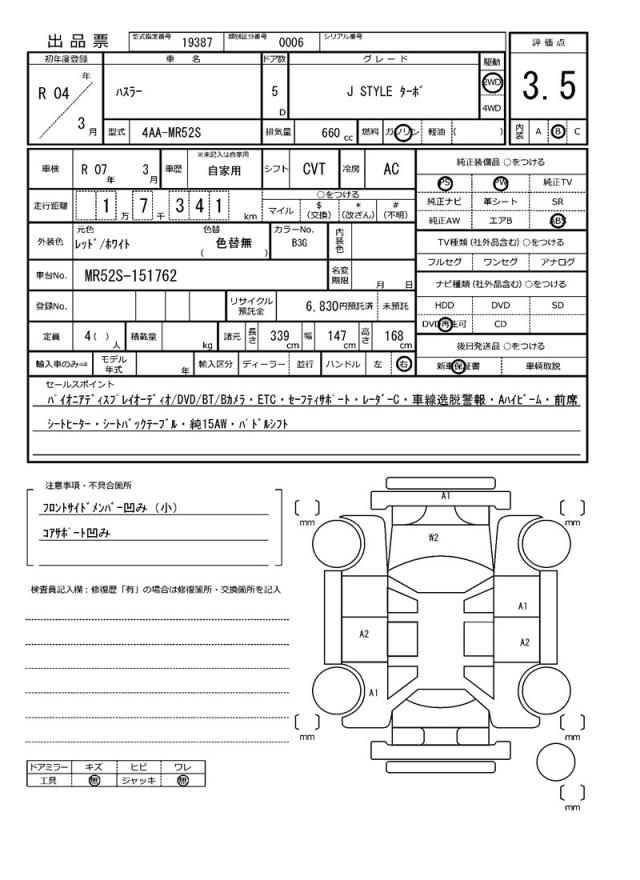 出品票 型式指定番号 19387 類別区分番号 0006 シリアル番号
評価点
3.5
内装 A B C
初年度登録 車名 ドア数 グレード 駆動
R 04 年 3 月 ﾊｽﾗｰ 5 D J STYLE ﾀｰﾎﾞ 2WD 4WD
型式 4AA-MR52S 排気量 660 cc 燃料 ガソリン 軽油 ( )
車検 R 07 年 3 月 車歴 ※未記入は自家用 自家用 シフト CVT 冷房 AC
走行距離 1 万 7 千 3 4 1 km ○をつける マイル $ (交換) * (改ざん) # (不明)
外装色 元色 ﾚｯﾄﾞ/ﾎﾜｲﾄ 色替 ( 色替無 ) カラーNo. B3G 内装色
車台No. MR52S-151762 名変期限 月 日
登録No. リサイクル預託金 6,830円預託済 未預託
定員 4( ) 人 積載量 kg 諸元 長さ 339 cm 幅 147 cm 高さ 168 cm
輸入車のみ⇒ モデル年式 年 輸入区分 ディーラー 並行 ハンドル 左 右
純正装備品 ○をつける
PS PW 純正TV
純正ナビ 革シート SR
純正AW エアB ABS
TV種類 (社外品含む) ○をつける
フルセグ ワンセグ アナログ
ナビ種類 (社外品含む) ○をつける
HDD DVD SD
DVD再生可 CD
後日発送品 ○をつける
新車保証書 車輌取説
セールスポイント
ﾊﾟｲｵﾆｱﾃﾞｨｽﾌﾟﾚｲｵｰﾃﾞｨｵ/DVD/BT/Bｶﾒﾗ・ETC・ｾｰﾌﾃｨｻﾎﾟｰﾄ・ﾚｰﾀﾞｰC・車線逸脱警報・Aﾊｲﾋﾞｰﾑ・前席
ｼｰﾄﾋｰﾀｰ・ｼｰﾄﾊﾞｯｸﾃｰﾌﾞﾙ・純15AW・ﾊﾟﾄﾞﾙｼﾌﾄ
注意事項・不具合箇所
ﾌﾛﾝﾄｻｲﾄﾞﾒﾝﾊﾞｰ凹み (小)
ｺｱｻﾎﾟｰﾄ凹み
検査員記入欄：修復歴「有」の場合は修復箇所・交換箇所を記入
ドアミラー キズ ヒビ ワレ
工具 無 ジャッキ 無
A1
[ ] mm [ ] mm
W2
A1
A2 A2
A1
[ ] mm [ ] mm
[ ] mm